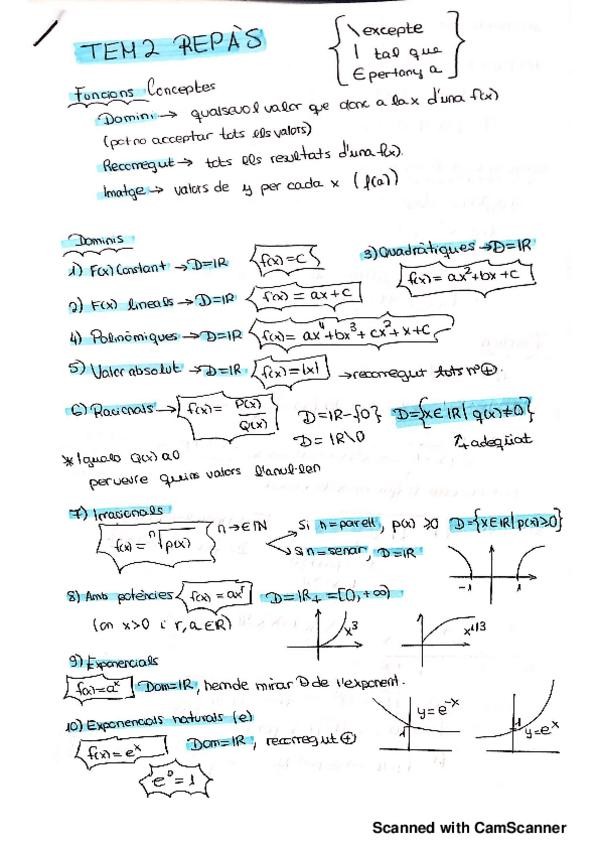 TEM2 REPÀS
\ excepte
| tal que
∈ pertany a
Funcions Conceptes
Domini → qualsevol valor que donc a la x d'una f(x)
(pot no acceptar tots els valors)
Recorregut → tots els resultats d'una f(x).
Imatge → valors de y per cada x (f(a))
Dominis
1) F(x) Constant → D=IR f(x)=c
2) F(x) lineals → D=IR f(x)=ax+c
3) Quadràtiques → D=IR
f(x)=ax²+bx+c
4) Polinòmiques → D=IR f(x)=ax⁴+bx³+cx²+x+c
5) Valor absolut → D=IR f(x)=|x| → recorregut tots nº ⊕.
6) Racionals → f(x)= P(x)/Q(x) D=IR-{0} D={x∈IR | q(x)≠0}
D=IR\0 ↑ adequat
* Igualo Q(x) a 0
per veure quins valors l'anul·len
7) Irracionals
f(x)=ⁿ√p(x) n→∈IN Si n=parell, p(x) ≥0 D={x∈IR | p(x)≥0}
Si n=senar, D=IR
-1 1
8) Amb potències f(x)=axʳ D=IR₊=[0,+∞)
(on x>0 i r,a∈R)
x³ x^1/3
9) Exponencials
f(x)=aˣ Dom=IR, hem de mirar D de l'exponent.
10) Exponencials naturals (e)
f(x)=eˣ Dom=IR, recorregut ⊕
e⁰=1
y=e⁻ˣ
1
y=eˣ
1
Scanned with CamScanner